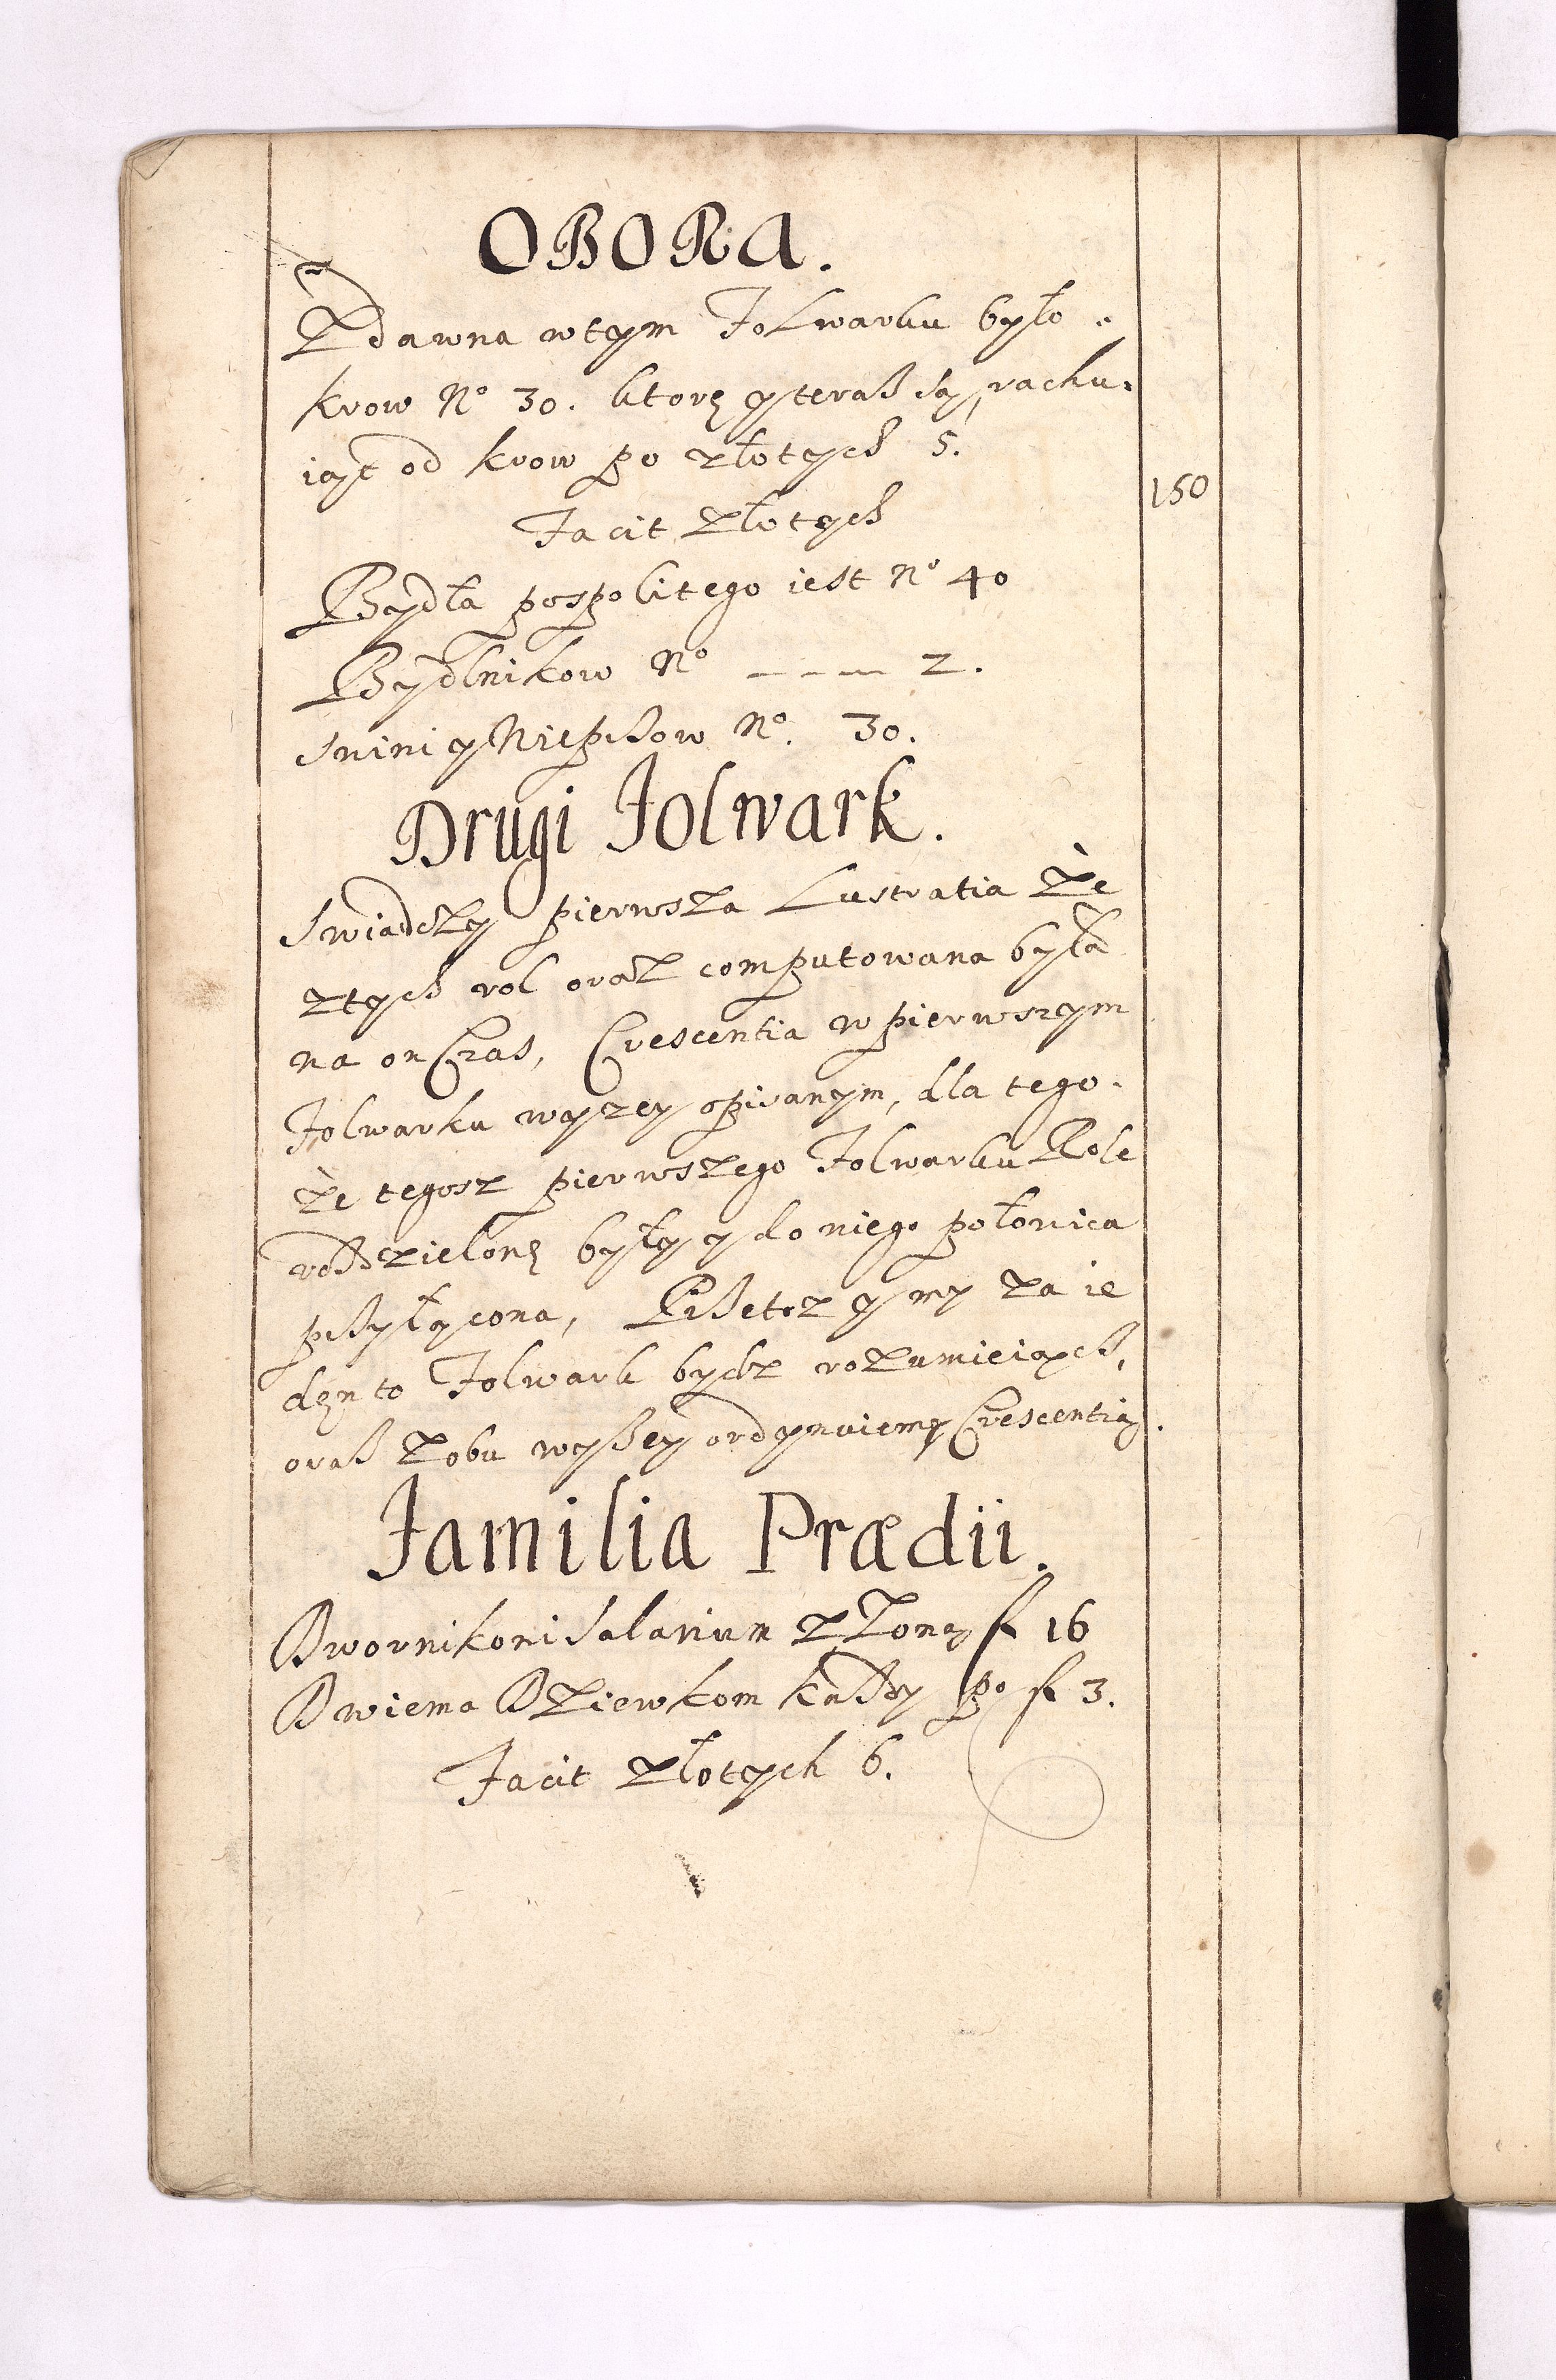 OBORA.
Zdawna wtym Folwarku było
krow No 30. ktorę yteraß są, rachu-
iąc od krow po złotych 5.
Facit Złotych 150
Bydła pospolitego iest No 40
Bydlnikow No ---- 2.
Swini y Wiepßow No. 30.
Drugi Folwark.
Swiadczy pierwsza Lustratia Że
ztych rol oraz computowana była
na on Czas, Crescentia w pierwszym
Folwarku wyzey opisanym, dla tego
że tegosz pierwszego Folwarku Role
rozdzielonę były y do niego połowica
pßyłącona, Pßetoz y my za ie
dęn to Folwark bydz rozumieiąch,
oraß zobu wyßey ordynuiemy Crescentią.
Familia Prædii.
Dwornikowi Salarium z Zoną fl 16
Dwiema Dziewkom kaßdy po fl 3.
Facit złotych 6.